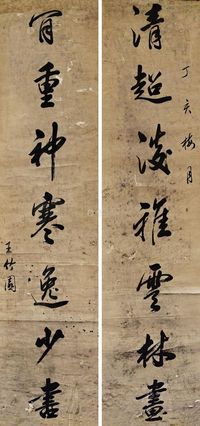 清超淡雅雲林畫
丁亥梅月
骨重神寒逸少書
王竹園